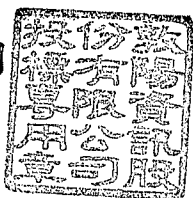 敦陽資訊股
份有限公司
投標專用章